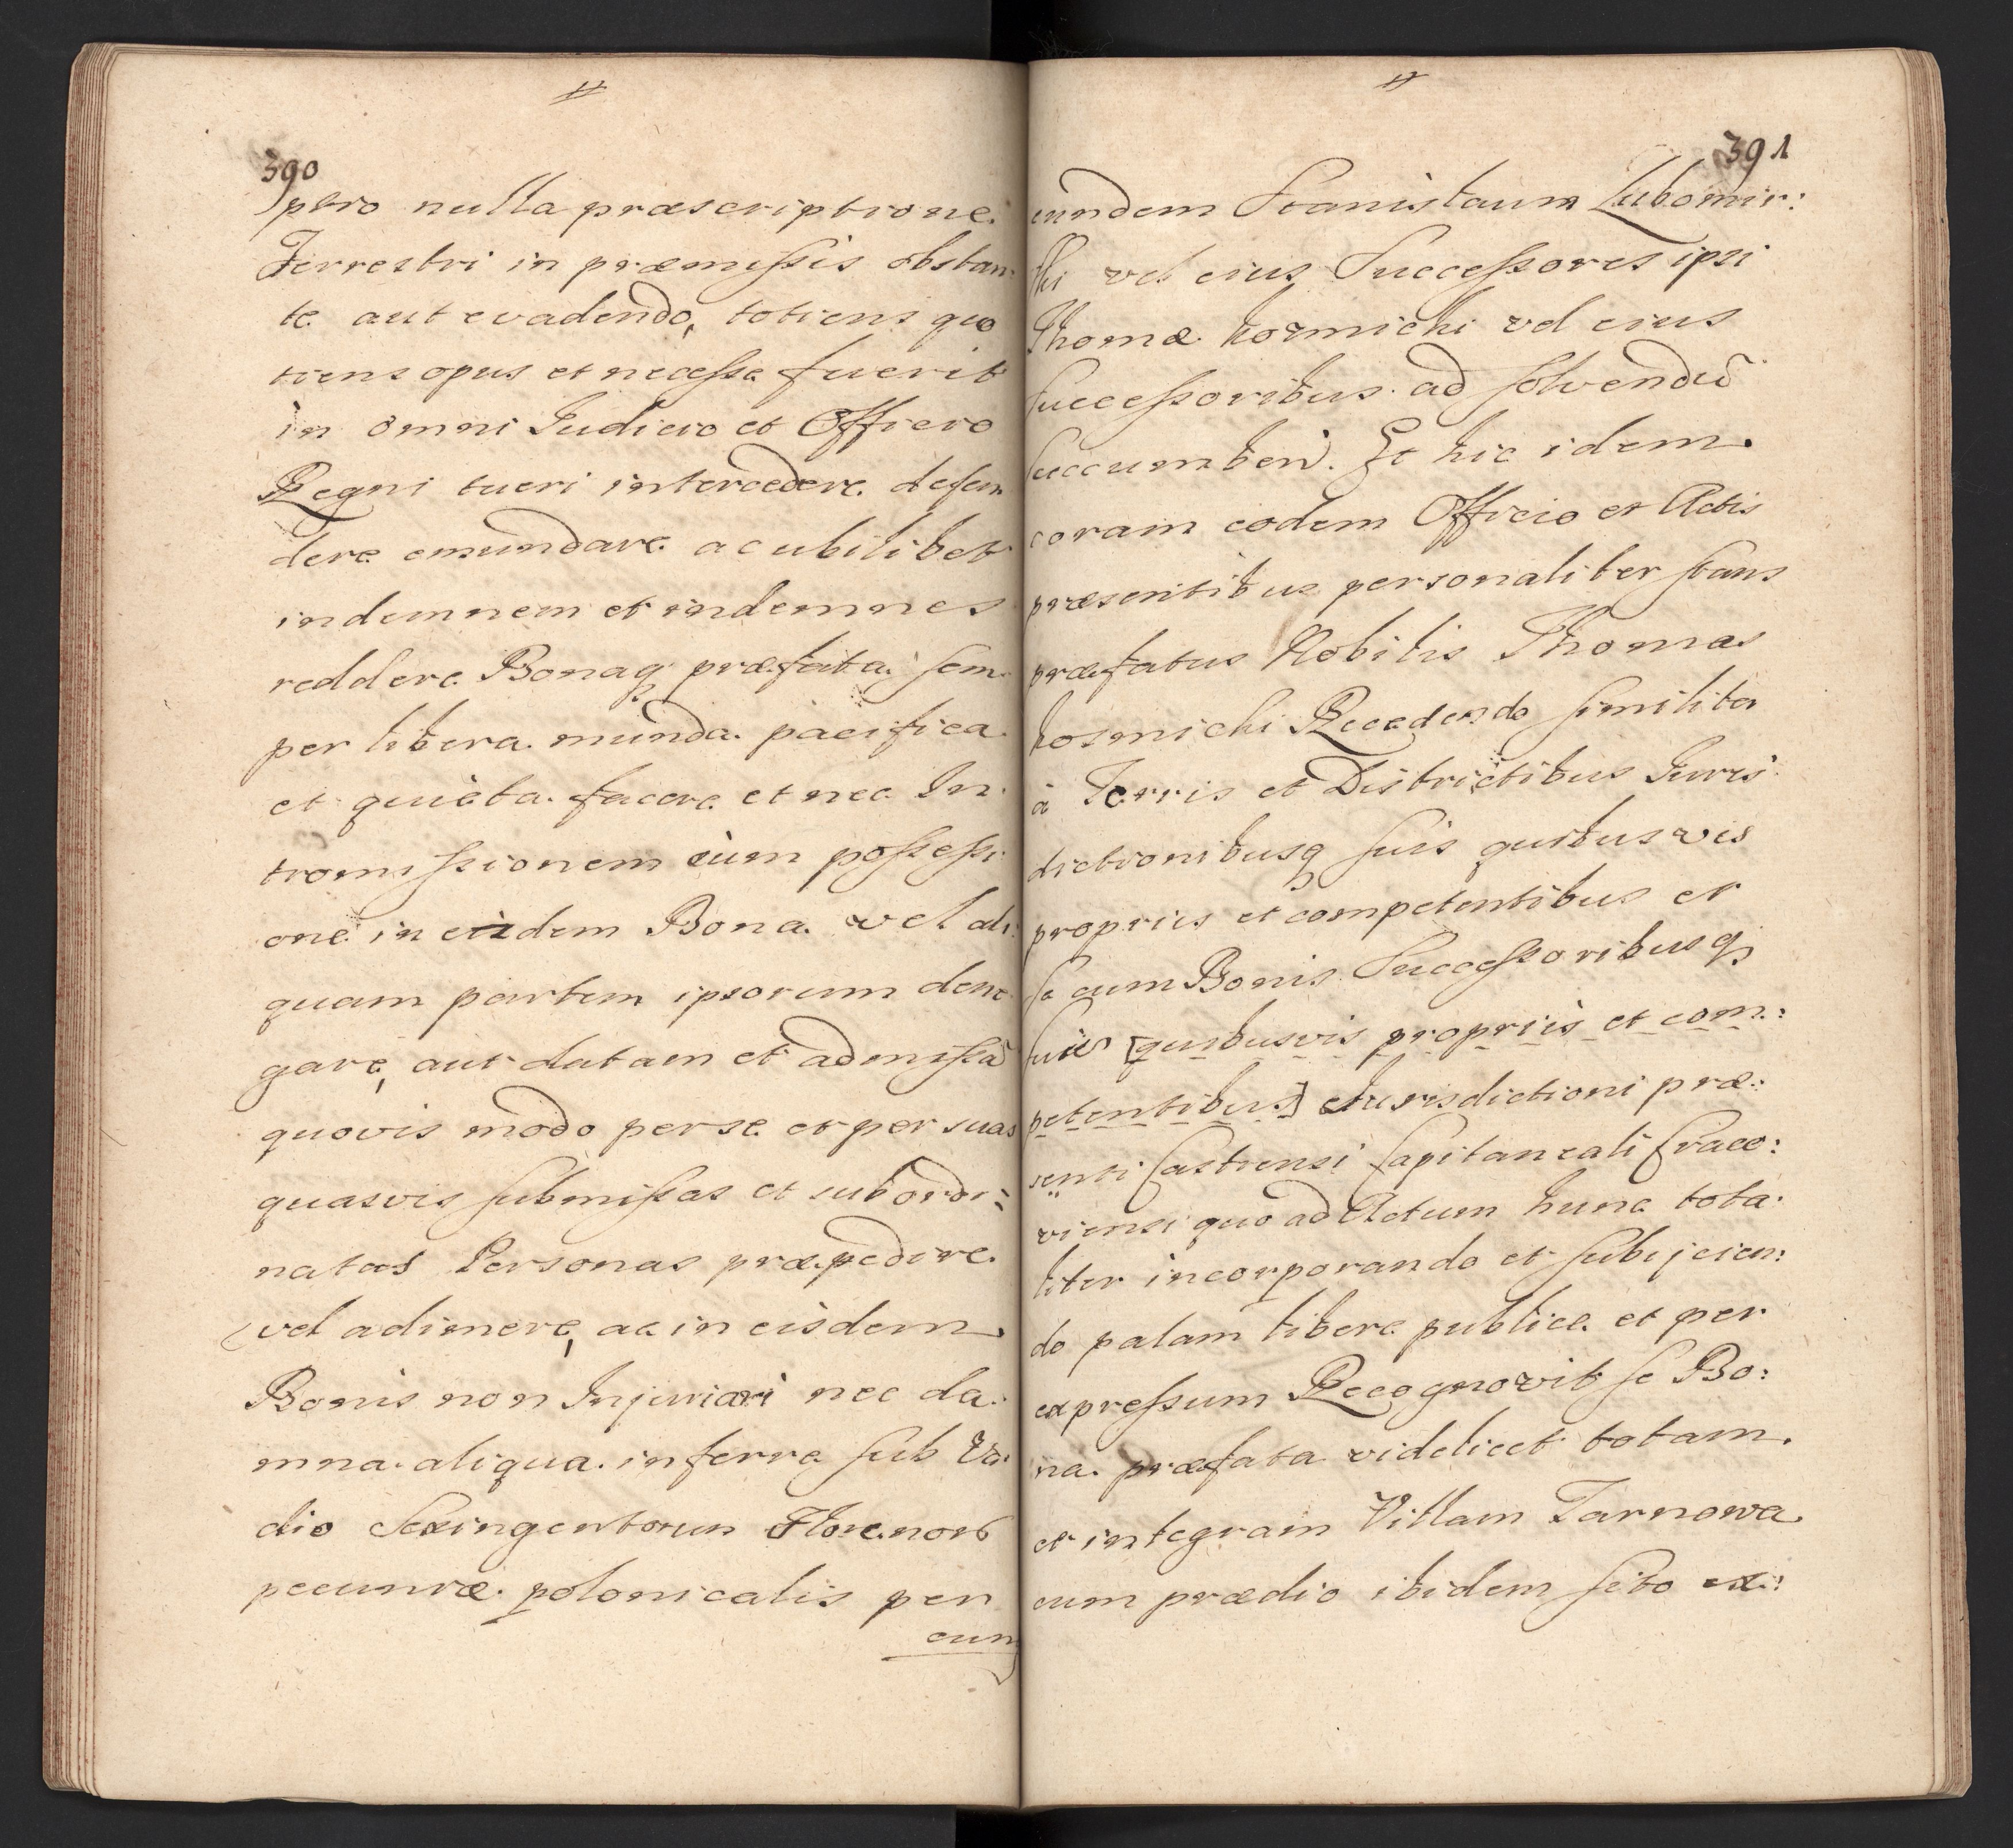 390
ptro nulla præscriptione
Terrestri in præmissis obstan:
te aut evadendo, totiens quo
tiens opus et necesse fuerit
in omni Judicio et Officio
Regni tueri intercedere defen
dere emundare ac ubilibet
indemnem et indemnes
reddere Bonaq præfata sem
per libera munda pacifica
et quieta facere et nec In
tromissionem cum possessi
one in eidem Bona vel ali:
quam partem ipsorum dene
gare, aut datam et admissã
quovis modo per se et per suas
quasvis submissas et subordi=
natas Personas præpedire
vel adimere, ac in eisdem
Bonis non Injuriari nec da:
mna aliqua inferre sub Va:
dio Sexingentorum Florenor
pecuniæ polonicalis per
eun
391
eundem Stanislaum Lubomir:
ski vel eius Successores ipsi
Thomæ Kozmicki vel eius
successoribus ad solvendũ
succumben. Et hic idem
coram eodem Officio et Actis
præsentibus personaliter stans
præfatus Nobilis Thomas
Kosmicki Recedendo similiter
à Terris et Districtibus Juris
dictionibusq suis quibusvis
propriis et competentibus et
se cum Bonis Successoribusq
suis [quibusvis propriis et com:
petentibus] Jurisdictioni præ:
senti Castrensi Capitaneali Craco:
viensi quo ad Actum hunc tota:
liter incorporando et subijcien:
do palam libere publice et per
expressum Recognovit se Bo:
na præfata videlicet totam
et integram Villam Tarnowa
cum prædio ibidem sito ex: